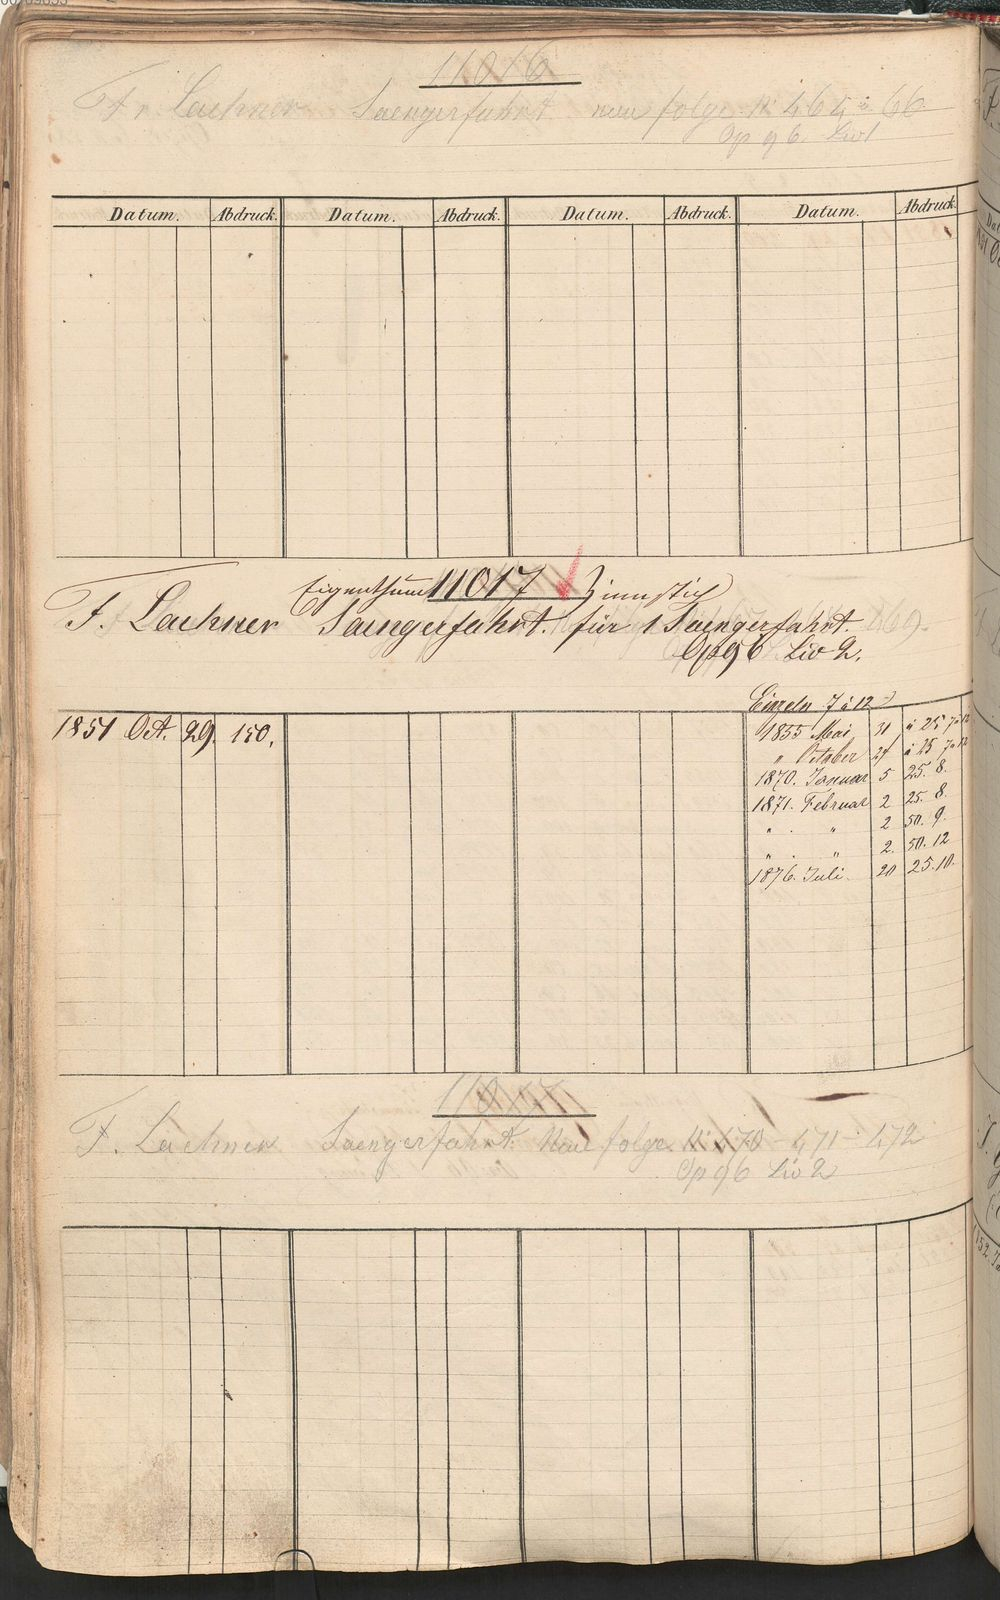 11016
Fr. Lachner Saengerfahrt. neue folge. N: 464 à 66
Op 96. Liv 1
Datum. Abdruck. Datum. Abdruck. Datum. Abdruck. Datum. Abdruck.
Eigenthum 11017 Zinnstich
F. Lachner Saengerfahrt. für 1 Saengerfahrt.
Op 96 Liv 2.
Einzeln 7 à 12
1851 Oct. 29. 150.
1855 Mai 31 à 25 7à12
" October 27 à 25 7à12
1870. Januar 5 25. 8.
1871. Februar 2 25. 8.
" " 2 50. 9.
" " 2. 50. 12
1876. Juli. 20 25. 10.
F. Lachner Saengerfahrt. Neue folge. N: 470 - 471 - 472
Op 96 Liv 2